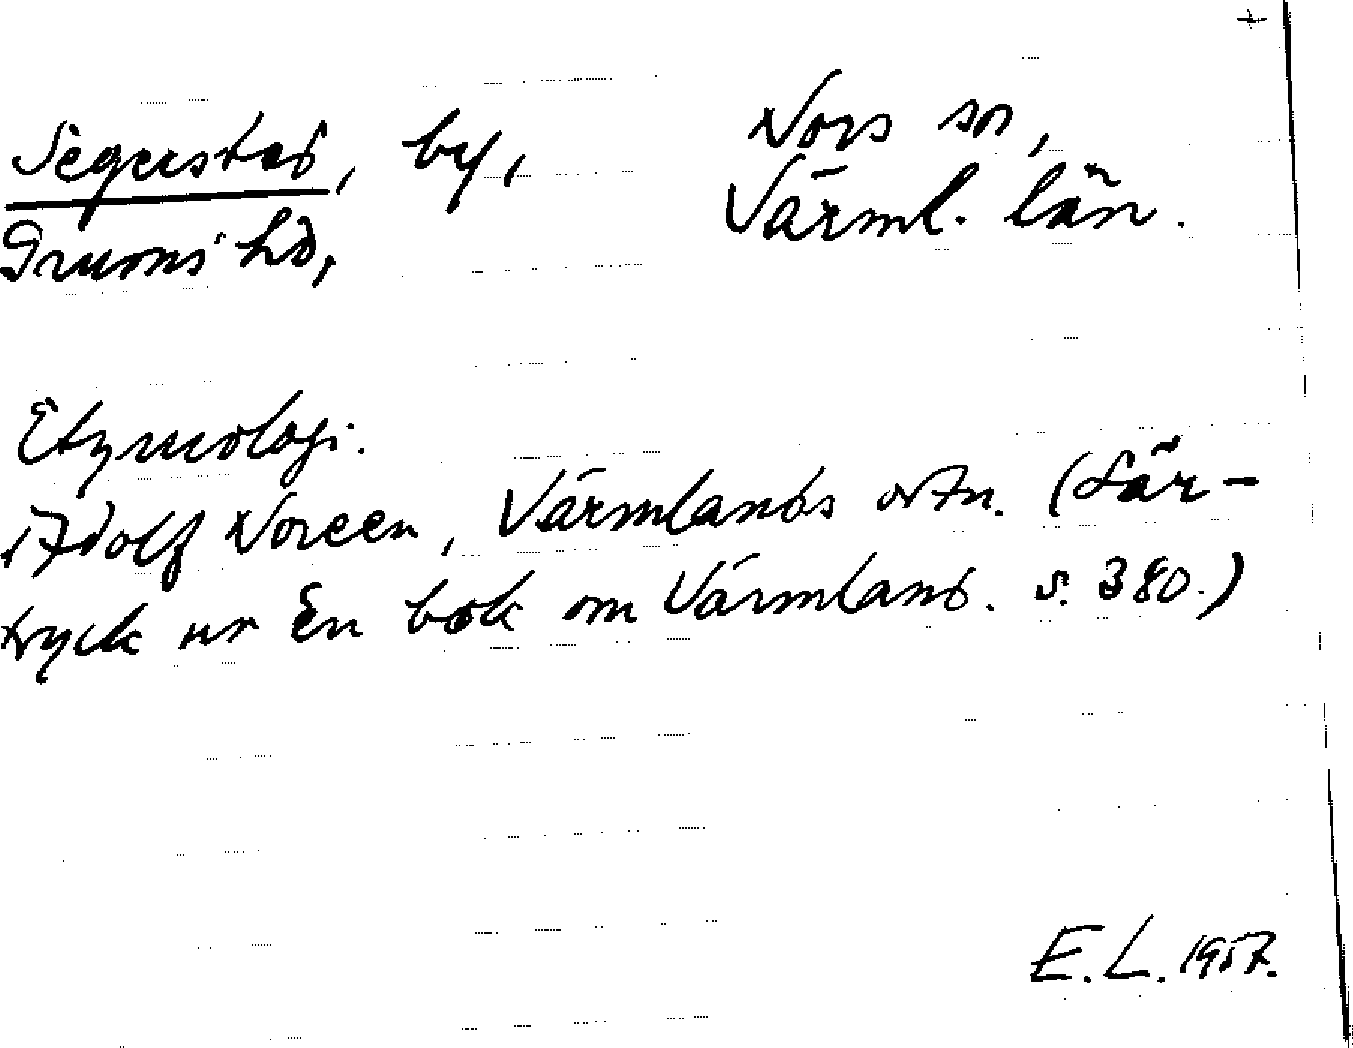 +
Segerstad, by, Nors sn,
Grums hd, Värml. län.
Etymologi.
Adolf Noreen, Värmlands ortn. (Sär-
tryck ur En bok om Värmland. s. 380.)
E. L. 1957.